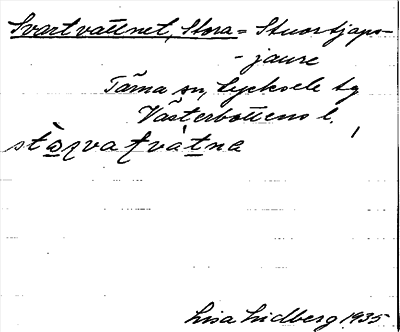 Svartvattnet, Stora = Stuortjaps-
-jaure
Tärna sn, Lycksele lg
Västerbottens l.
Lisa Lidberg 1935